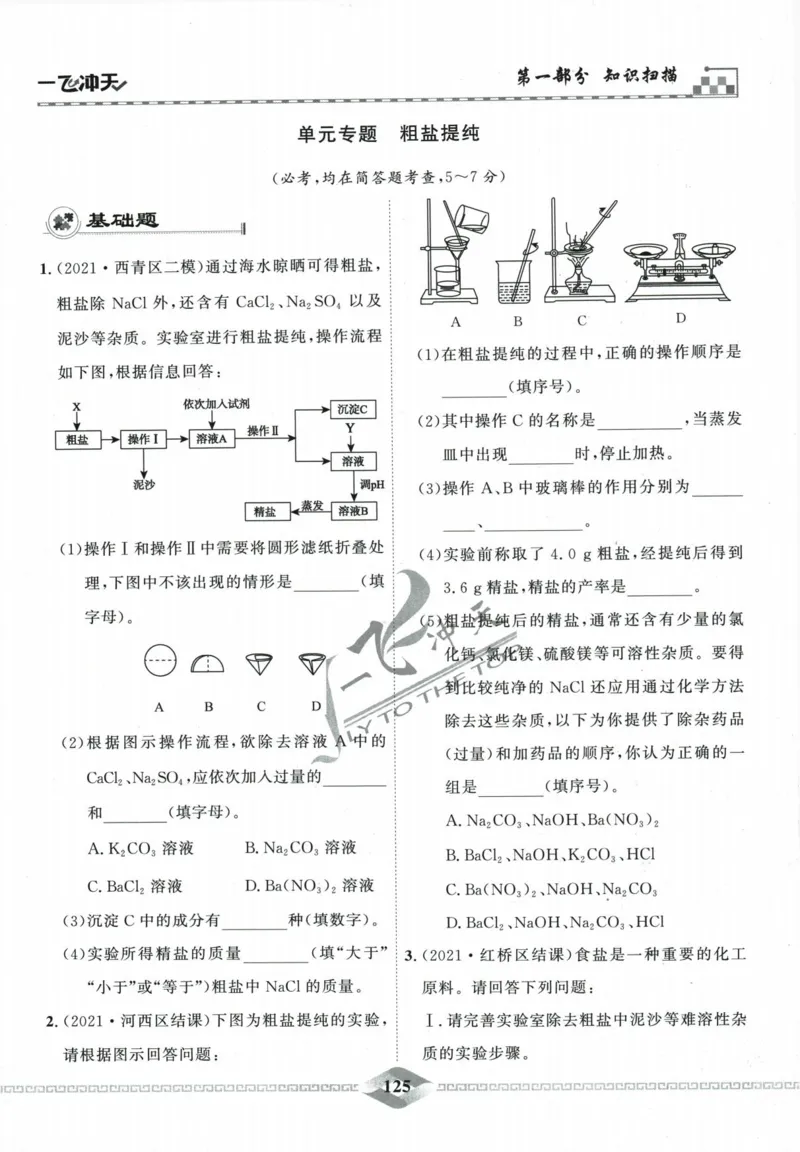 一飞冲天
第一部分 知识扫描
单元专题 粗盐提纯
(必考,均在简答题考查,5~7分)
基础题
1.(2021·西青区二模)通过海水晾晒可得粗盐,
粗盐除 NaCl 外,还含有 CaCl₂、Na₂SO₄ 以及
泥沙等杂质。实验室进行粗盐提纯,操作流程
如下图,根据信息回答:
X
依次加入试剂
粗盐
操作Ⅰ
溶液A
操作Ⅱ
沉淀C
Y
溶液
泥沙
调pH
精盐
蒸发
溶液B
(1)操作Ⅰ和操作Ⅱ中需要将圆形滤纸折叠处
理,下图中不该出现的情形是________(填
字母)。
A B C D
(2)根据图示操作流程,欲除去溶液 A 中的
CaCl₂、Na₂SO₄,应依次加入过量的________
和________(填字母)。
A. K₂CO₃ 溶液 B. Na₂CO₃ 溶液
C. BaCl₂ 溶液 D. Ba(NO₃)₂ 溶液
(3)沉淀 C 中的成分有________种(填数字)。
(4)实验所得精盐的质量________(填“大于”
“小于”或“等于”)粗盐中 NaCl 的质量。
2.(2021·河西区结课)下图为粗盐提纯的实验,
请根据图示回答问题:
A B C D
(1)在粗盐提纯的过程中,正确的操作顺序是
________(填序号)。
(2)其中操作 C 的名称是__________,当蒸发
皿中出现________时,停止加热。
(3)操作 A、B 中玻璃棒的作用分别为______
____、__________。
(4)实验前称取了 4.0 g 粗盐,经提纯后得到
3.6 g 精盐,精盐的产率是________。
(5)粗盐提纯后的精盐,通常还含有少量的氯
化钙、氯化镁、硫酸镁等可溶性杂质。要得
到比较纯净的 NaCl 还应用通过化学方法
除去这些杂质,以下为你提供了除杂药品
(过量)和加药品的顺序,你认为正确的一
组是________(填序号)。
A. Na₂CO₃、NaOH、Ba(NO₃)₂
B. BaCl₂、NaOH、K₂CO₃、HCl
C. Ba(NO₃)₂、NaOH、Na₂CO₃
D. BaCl₂、NaOH、Na₂CO₃、HCl
3.(2021·红桥区结课)食盐是一种重要的化工
原料。请回答下列问题:
Ⅰ.请完善实验室除去粗盐中泥沙等难溶性杂
质的实验步骤。
一飞冲天
FLY TO THE TOP
125